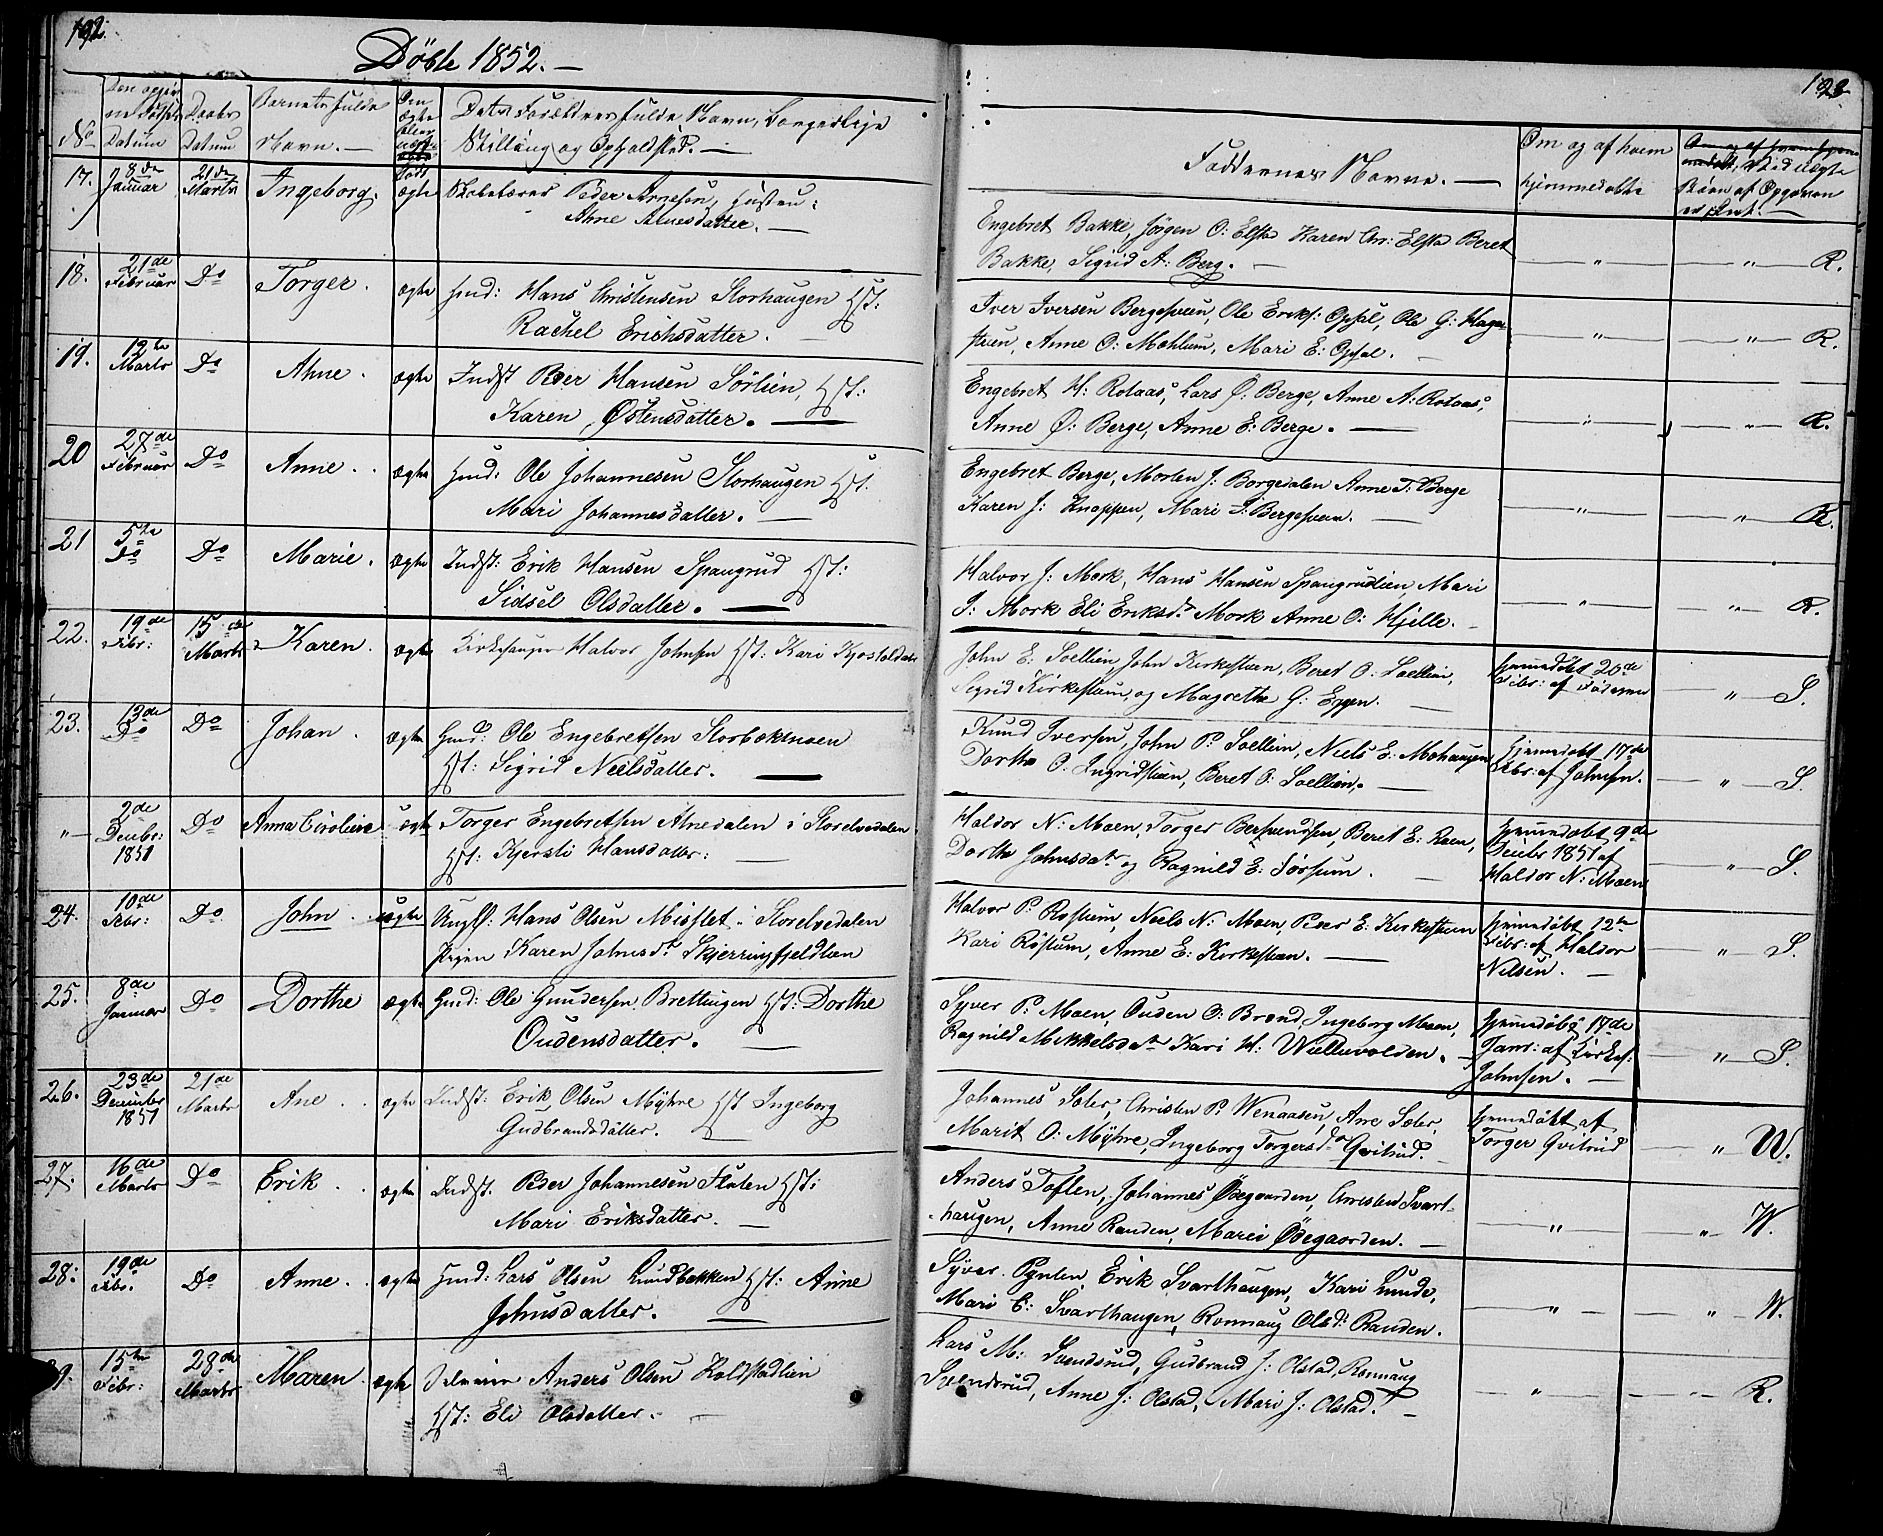 192.
Döbte 1852. —
No
Datum
Daabs Datum
Barnets fulde Navn. —
ægte
Stilling og Opholdsted. —
17. 8de Januar 21de Marts Ingeborg. ægte Peder Arnesen, Hustru:
Ahne Alnesdatter. —
18. 21de Februar Do Torger. ægte Gmd: Hans Christensen Storhaugen Hst:
Rachel Erichsdatter.
19. 12te Marts Do Ahne. ægte Indst Peder Hansen Sörlien, Hst:
Karen Östensdatter. —
20 27de Februar Do Anne. ægte Gmd: Ole Johannesen Storhaugen Hst.
Mari Johannesdatter. —
21 5te Do Do Marie. ægte Indst: Erik Hansen Spangrud Hst:
Sidsel Olsdatter. —
22. 19de Febr: 15de Marts Karen. ægte Kirkesanger Halvor Johnsen Hst: Kari
23. 13de Do Do Johan. ægte Gmd: Ole Engebretsen Storbækmoen
Hst: Sigrid Neelsdatter. —
" 2de Decbr: 1851 Do Anna Ciroline uægte Torger Engebretsen Atnedalen i Storelvedalen
Hst: Kjersti Hansdatter: —
24. 10de Febr: Do John. uægte Ungk: Hans Olsen Misflet i Storelvedalen
Pigen Karen Johnsdr Skjerringfjeldlien
25. 8de Januar Do Dorthe ægte Gmd: Ole Gundersen Brettingen Hst: Dorthe
Oudensdatter. —
26. 23de December 1851 21de Marts Ane. ægte Indst: Erik Olsen Myhre Hst Ingeborg
Gudbrandsdatter. —
27. 16de Marts Do Erik. ægte Indst. Peder Johannesen Fluten Hst:
Mari Eriksdatter. —
28: 19de Febr. Do Anne. ægte Gmd: Lars Olsen Lundbakken Hst: Anne
Johnsdatter. —
15te Febr: 28de Marts Maren. ægte Anders Olsen Koldstadlien
Hst: Eli Olsdatter. —
Faddernes Navne. —
Om og af hvem hjemmedøbte
Engebret Bakke, Jörgen O: Elsta Karen Chr: Elsta Beret
Bakke, Sigrid A: Berg. — " — " — R.
Iver Iversen Bergesveen, Ole Eriks: Opsal, Ole G: Hage-
stuen, Anne O: Mæhlum, Mari E: Opsal. — " — " — R.
Engebret H: Rotaas, Lars Ö: Berge, Anne A: Rotaas,
Anne Ö: Berge, Anne E: Berge. — " — " — R.
Engebret Berge, Morten J: Borgedalen Anne T: Berge
Karen J: Knappen, Mari I: Bergesveen. — " — " — R.
Halvor J: Mork, Hans Hansen Spangrudlien, Mari
J: Mork Eli Eriksdr Mork Anne O: Hjelle. — " — " — R.
John E: Soellien, John Kirkestuen, Beret O: Soellien, Hjemmedöbt 20de
Sigrid Kirkestuen og Magrethe G: Eggen. — Febr: af Faderen — " — S.
Knud Iversen, John P: Soellien, Niels E: Mohaugen Hjemmedøbt 17de
Dorthe O: Ingridstuen, Beret O: Soellien. — Febr: af Johnsen. — " — S.
Haldor N: Moen, Torger Bersvendsen, Beret E: Hjemmedøbt 9de
Dorthe Johnsdatr og Ragnild E: Sörsum. — Decbr 1851 af
Haldor N: Moen — " — S.
Halvor P: Røstum, Neels N: Moen, Peder E: Kirkestuen Hjemmedöbt 12te
Kari Røstum, Anne E: Kirkestuen. — Febr: af Haldor
Nilsen. — " — S.
Syver P: Moen, Ouden O: Brænd, Ingeborg Moen, Hjemmedöbt 17de
Ragnild Mikkelsdatr Kari H: Wullumolden. — Janr: af Kirkes:
Johnsen. — " — S.
Johannes Sæter, Christen P: Wenaasen, Ane Sæter, Hjemmedöbt af
Marit O: Myhre, Ingeborg Torgersdr Qvitrud. — Torger Qvitrud — " W.
Anders Toften, Johannes Ödegaarden, Christen Svart-
haugen, Anne Randen, Marie Ödegaarden. — " — " — W.
Syver Pynten, Erik Svarthaugen, Kari Lunde,
Mari E: Svarthaugen, Ronnaug Olsd: Randen. — " — " — W.
Lars M: Svendsrud, Gudbrand J: Olstad, Ronnaug
Svendsrud, Anne J: Olstad, Mari J: Olstad. — " — " — R.